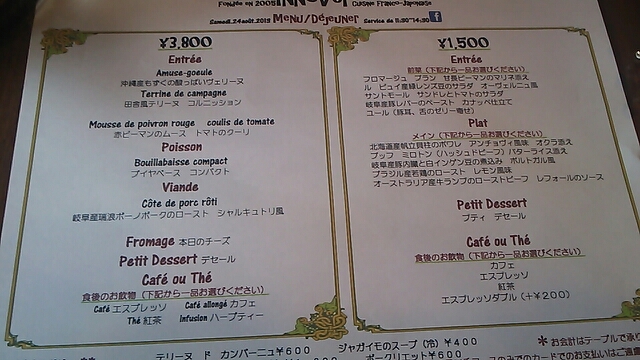 Fondée en 2009 INNOVÉ Cuisine Franco-Japonaise
Samedi.24août.2013 MENU/DÉJEUNER Service de 11:30~14:30
¥3,800
Entrée
Amuse-gueule
沖縄産もずくの酸っぱいヴェリーヌ
Terrine de campagne
田舎風テリーヌ コルニッション
Mousse de poivron rouge coulis de tomate
赤ピーマンのムース トマトのクーリ
Poisson
Bouillabaisse compact
ブイヤベース コンパクト
Viande
Côte de porc rôti
岐阜産瑞浪ボーノポークのロースト シャルキュトリ風
Fromage 本日のチーズ
Petit Dessert デセール
Café ou Thé
食後のお飲物 (下記から一品お選びください)
Café エスプレッソ Café allongé カフェ
Thé 紅茶 Infusion ハーブティー
¥1,500
Entrée
前菜 (下記から一品お選びください)
フロマージュ ブラン 甘長ピーマンのマリネ添え
ル ピュイ産緑レンズ豆のサラダ オーヴェルニュ風
サントモール サンドレとトマトのサラダ
岐阜産豚レバーのペースト カナッペ仕立て
ユール (豚耳、舌のゼリー寄せ)
Plat
メイン (下記から一品お選びください)
北海道産帆立貝柱のポワレ アンチョヴィ風味 オクラ添え
ブッフ ミロトン (ハッシュドビーフ) バターライス添え
岐阜産豚内臓と白インゲン豆の煮込み ポルトガル風
ブラジル産若鶏のロースト レモン風味
オーストラリア産牛ランプのローストビーフ レフォールのソース
Petit Dessert
プティ デセール
Café ou Thé
食後のお飲物 (下記から一品お選びください)
カフェ
エスプレッソ
紅茶
エスプレッソダブル (+¥200)
テリーヌ ド カンパーニュ¥600 ジャガイモのスープ (冷) ¥400
ポークリエット¥600
*お会計はテーブルで承
のみでのカードでのお支払いはご遠